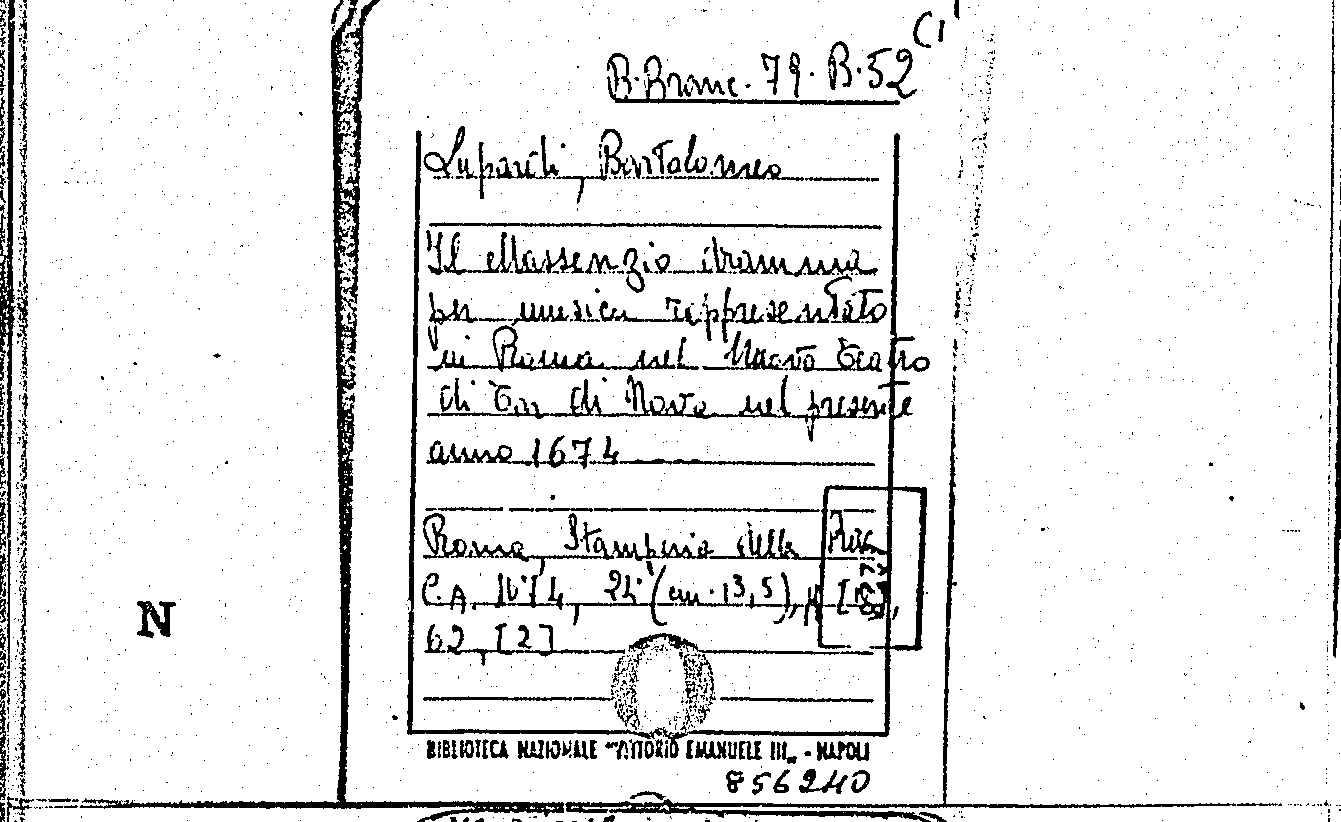 (1
B. Branc. 79. B. 52
Lupardi, Bartolomeo
Il Massenzio dramma
per musica rappresentato
in Roma nel Nuovo Teatro
di Tor di Nona nel presente
anno 1674
Roma, Stamperia della Rev.
C.A. 1674, 24° (cm. 13,5), p.
62, [2]
N
BIBLIOTECA NAZIONALE "VITTORIO EMANUELE III„ - NAPOLI
856240